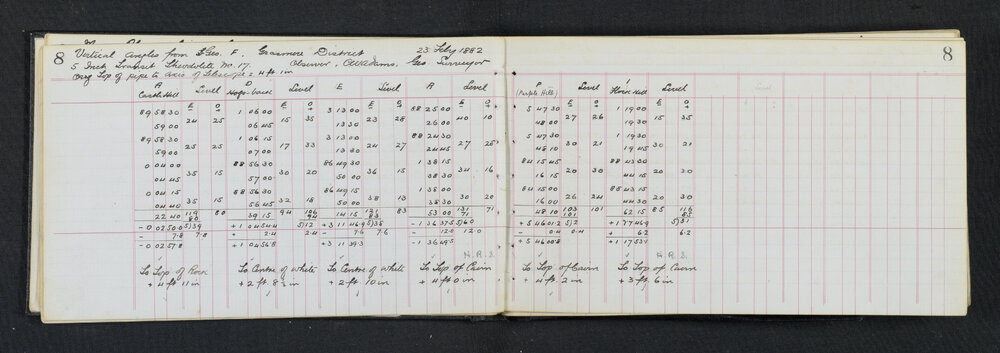 8 Vertical angles from S Geo. F. Grasmere District 23 Feby 1882
5 Inch Transit Theodolite No. 17. Observer, CWAdams, Geo Surveyor
Top of pipe to axis of telescope = 4 ft 1 in
8
A Level D Level E Level A Level F Level Level
Castle Hill Hogs-back (Purple Hill)
E O E O E O E O E O E O
89 58 30 1 06 00 3 13 00 88 25 00 5 47 30 1 19 00
24 25 15 35 23 28 40 10 27 26 15 35
59 00 06 45 13 30 26 00 48 00 19 30
89 58 30 1 06 15 3 13 00 88 24 30 5 47 30 1 19 30
25 25 17 33 24 27 27 25 30 21 30 21
59 00 07 00 13 30 24 45 48 10 19 45
0 04 00 88 56 30 86 49 30 1 38 15 84 15 45 88 43 00
35 15 30 20 36 15 34 16 20 30 20 30
04 45 57 15 50 00 38 30 16 15 44 15
0 04 15 88 56 30 86 49 15 1 38 00 84 15 00 88 43 15
35 15 32 18 38 13 30 20 26 24 20 30
04 40 56 45 50 00 38 30 16 00 44 30
22 40 119 80 39 15 94 106 14 15 121 83 53 00 131 71 48 10 103 101 62 15 85 116
80 94 83 71 101 85
- 0 02 50.0 5)39 + 1 04 54.4 5)12 + 3 11 46.9 5)38 - 1 36 37.5 5)60 + 5 46 01.2 5)2 + 1 17 46.9 5)31
- 7.8 7.8 2.4 2.4 - 7.6 7.6 - 12.0 12.0 - 0.4 0.4 + 6.2 6.2
- 0 02 57.8 + 1 04 56.8 + 3 11 39.3 - 1 36 49.5 + 5 46 00.8 + 1 17 53.1
H.R.S. H.R.S.
To Top of To Centre of white To Centre of white To Top of Cairn To Top of Cairn To Top of Cairn
+ 4 ft 11 in + 2 ft. 8 ½ in + 2 ft 10 in + 4 ft 0 in + 4 ft. 2 in + 3 ft 6 in